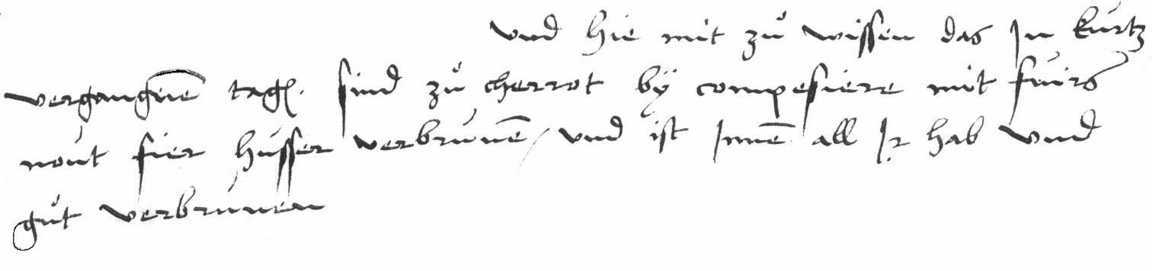 vnd hie mit zů wissen das In kurtz
vergangnē tagē sind zů cherrot by compesiere mit fuirs
nout fier hüsser verbrunē / vnd ist Innē all Ir hab vnd
gůt verbrunen